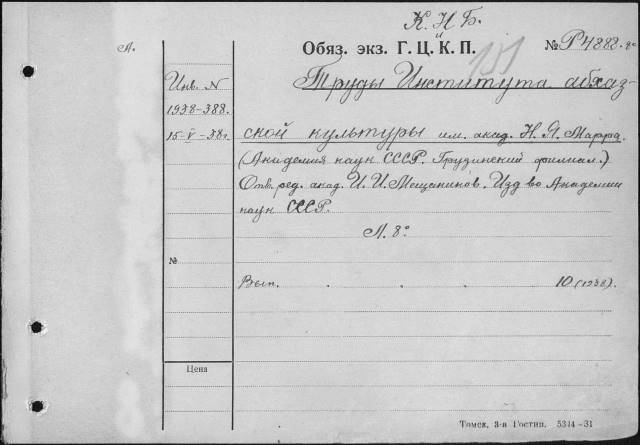 К. Н. Б.
и
А.
Обяз. экз. Г. Ц. К. П.
№ Р4882.80
101
Инв. N
1938-388.
15-V-38г
Труды Института абхаз-
ской культуры им. акад. Н. Я. Марра.
(Академия наук СССР. Грузинский филиал.)
Отв. ред. акад. И. И. Мещанинов. Изд во Академии
наук СССР.
Л. 8°
№
Вып. . . . 10 (1938).
Цена
Томск, 3-я Гостип. 5344-31